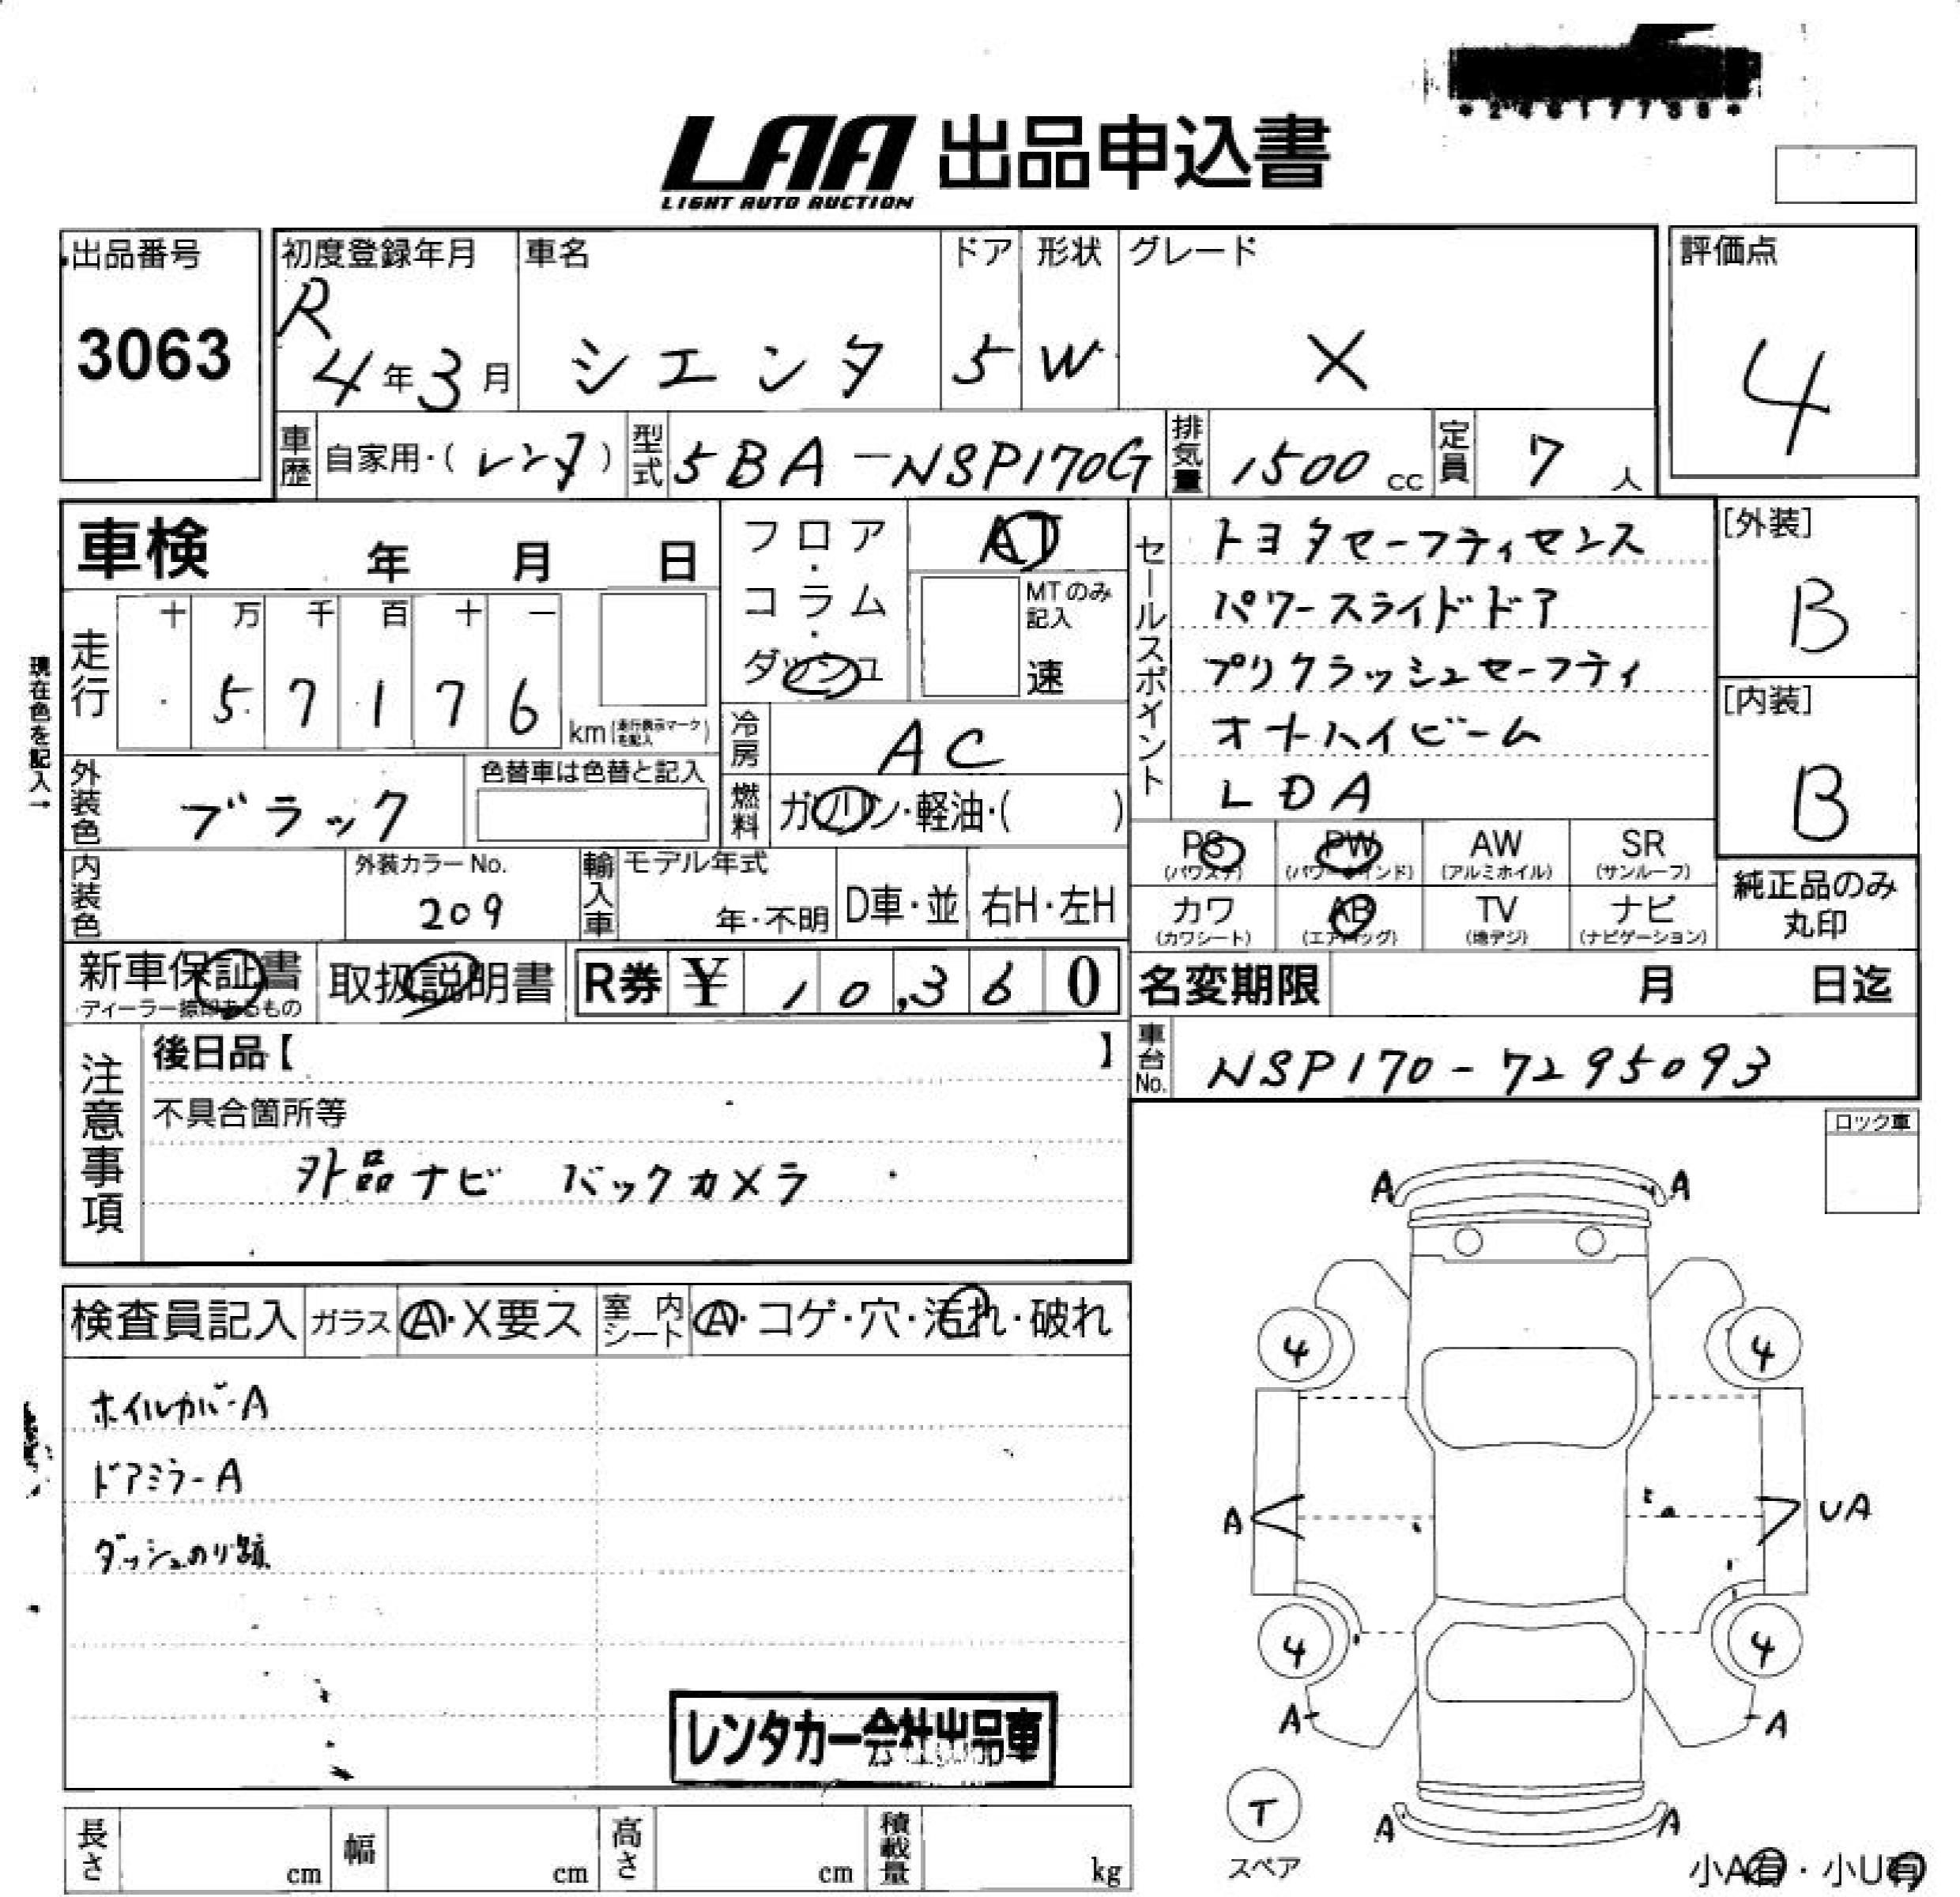 LAA 出品申込書
LIGHT AUTO AUCTION
出品番号
3063
初度登録年月
R 4年3月
車名
シエンタ
ドア
5
形状
W
グレード
X
評価点
4
車歴 自家用・( レンタ )
型式 5BA-NSP170G
排気量 1500 cc
定員 7 人
車検 年 月 日
フロア・コラム・ダッシュ
AT
MTのみ記入
速
セールスポイント
トヨタセーフティセンス
パワースライドドア
プリクラッシュセーフティ
オートハイビーム
LDA
[外装]
B
[内装]
B
現在色を記入→
走行
十 万 千 百 十 一
5 7 1 7 6 km(走行表示マークを記入)
冷房 AC
外装色 ブラック
色替車は色替と記入
燃料 ガソリン・軽油・( )
PS (パワステ)
PW (パワーウインド)
AW (アルミホイル)
SR (サンルーフ)
カワ (カワシート)
AB (エアバッグ)
TV (地デジ)
ナビ (ナビゲーション)
純正品のみ丸印
内装色
外装カラーNo.
209
輸入車 モデル年式
年・不明
D車・並
右H・左H
新車保証書
ディーラー捺印あるもの
取扱説明書
R券 ¥ 10,360
名変期限 月 日迄
車台No. NSP170-7295093
注意事項
後日品【 】
不具合箇所等
外品ナビ バックカメラ
ロック車
検査員記入 ガラス A・X要ス 室内シート A・コゲ・穴・汚れ・破れ
ホイルカバーA
ドアミラーA
ダッシュのり跡
レンタカー会社出品車
A A
4 4
A UA
4 4
A A
T
スペア
A A
小A有・小U有
長さ cm 幅 cm 高さ cm 積載量 kg